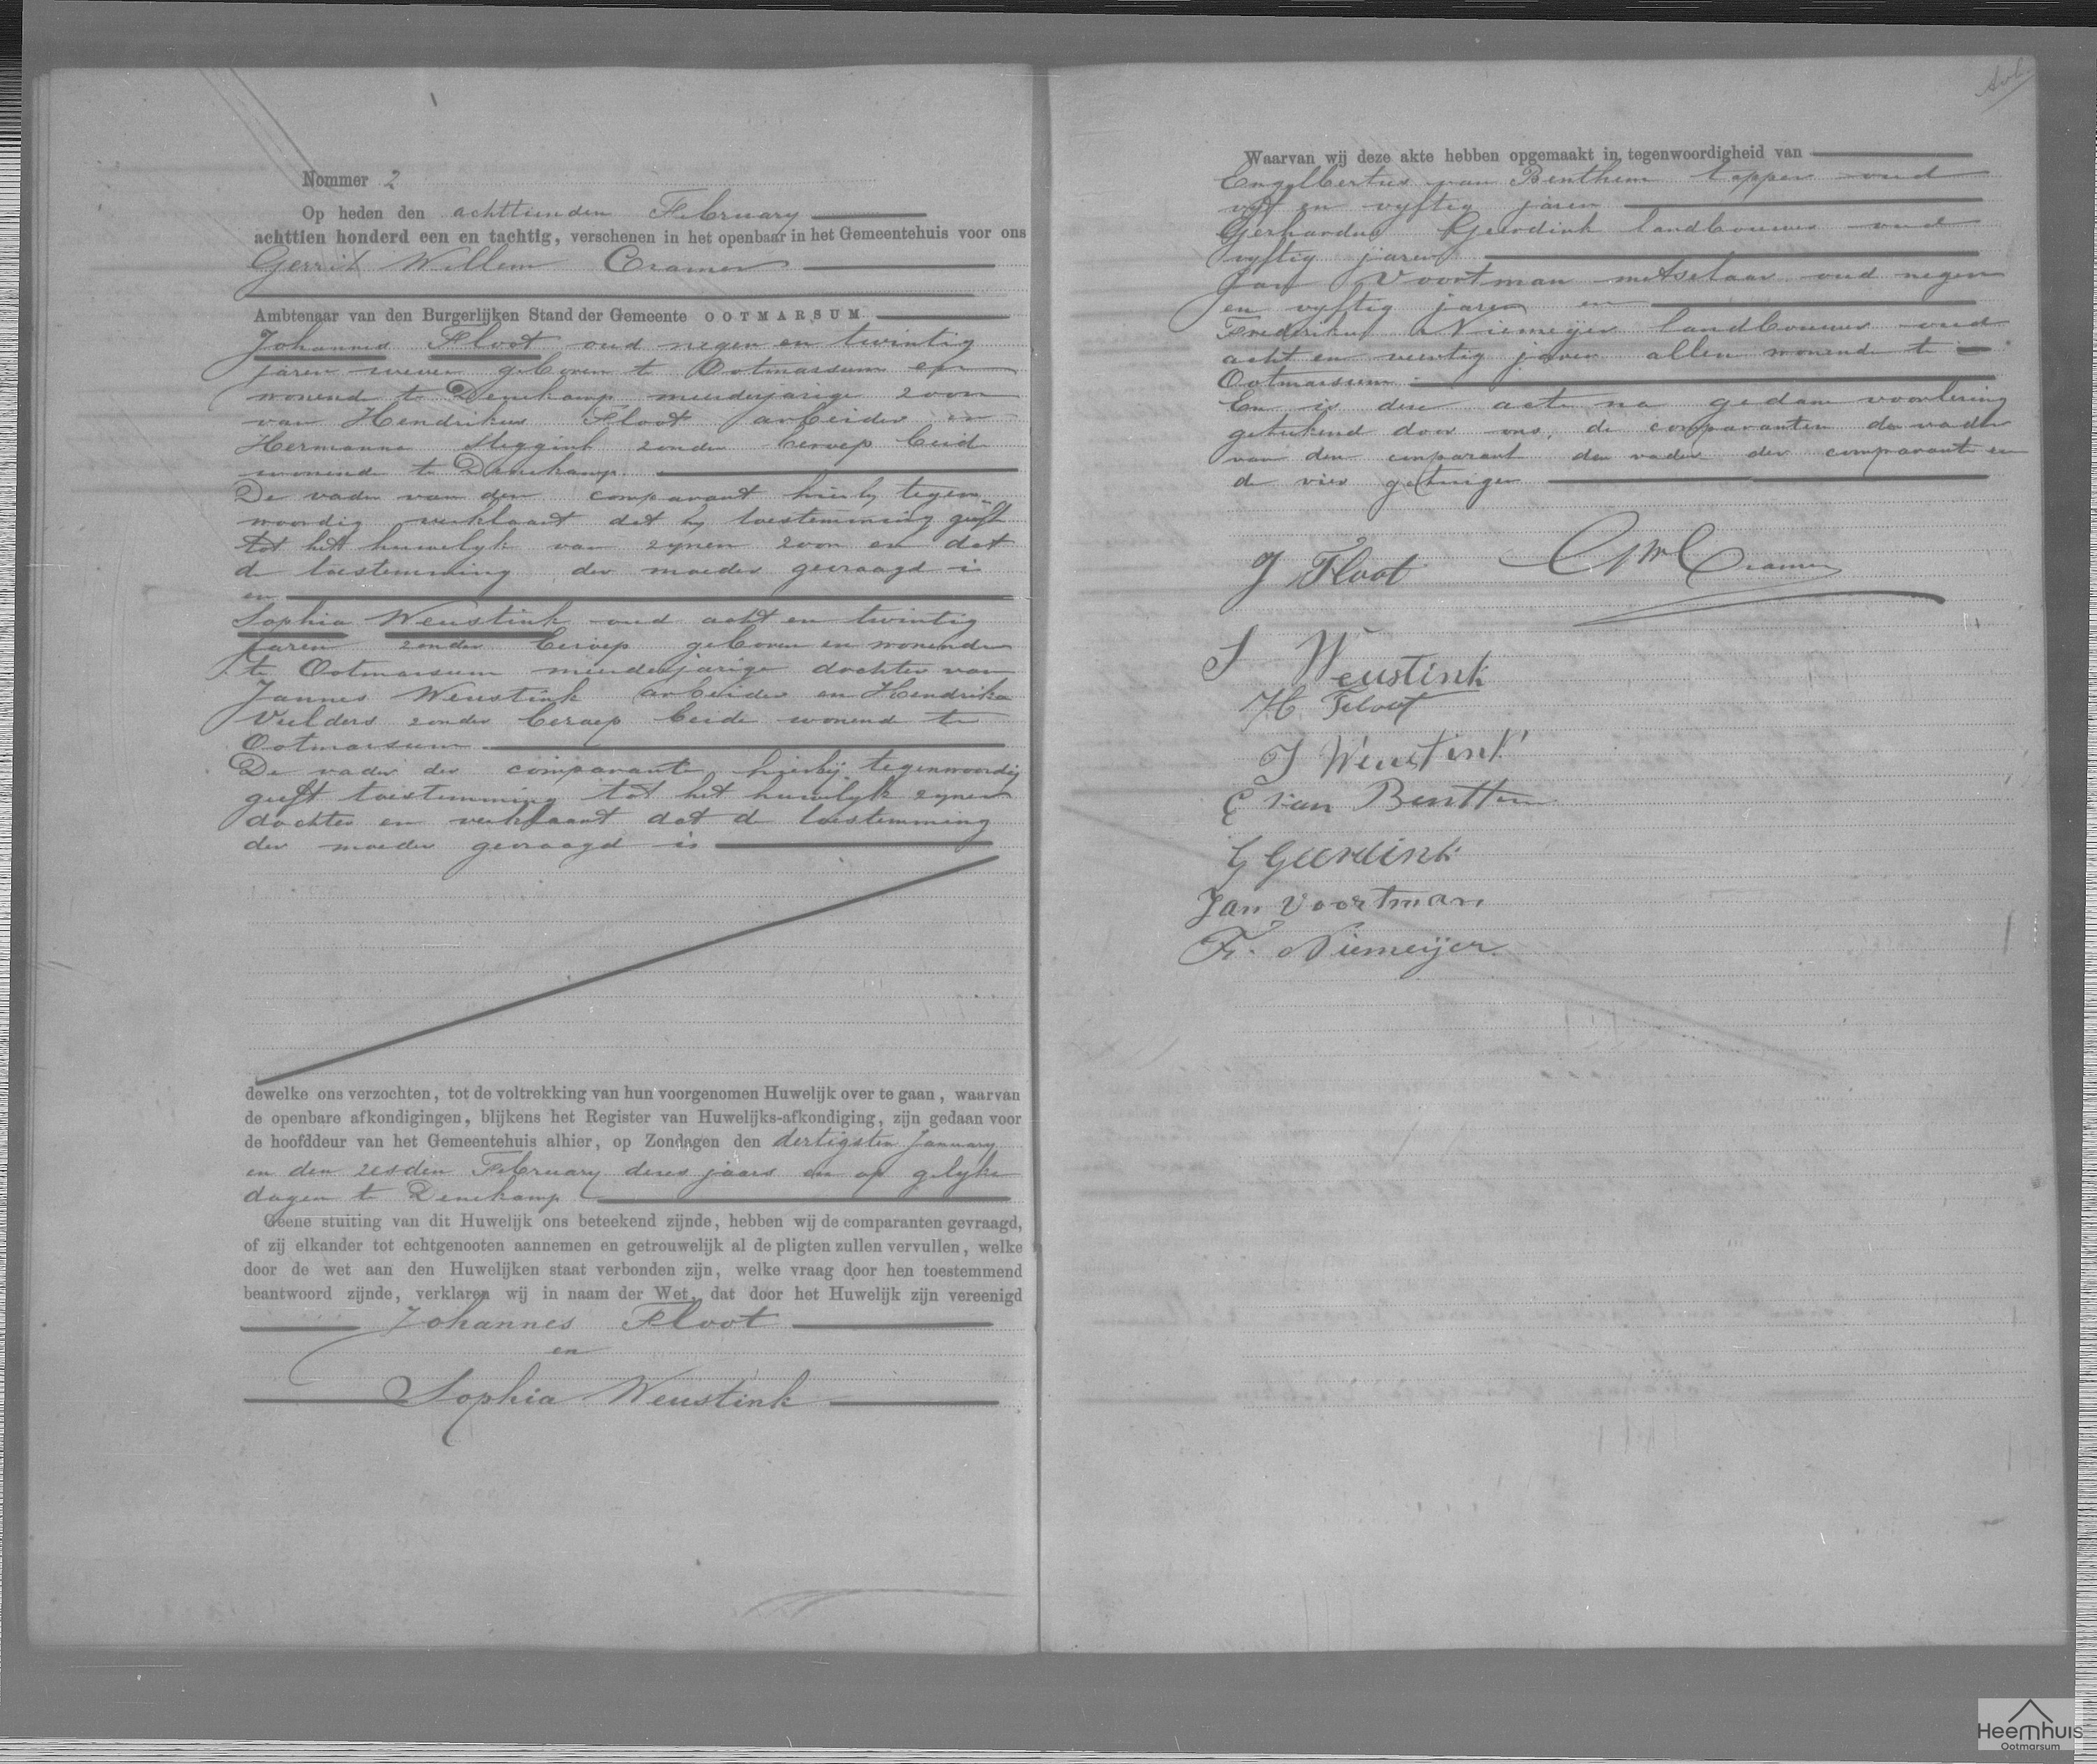 Nommer 2
Op heden den achttienden February
achttien honderd een en tachtig, verschenen in het openbaar in het Gemeentehuis voor ons
Gerrit Willem Cramer
Ambtenaar van den Burgerlijken Stand der Gemeente OOTMARSUM
Johannes Floot oud negen en twintig
jaren wever geboren te Ootmarsum en
wonend te Denekamp meerderjarige zoon
van Hendrikus Floot arbeider en
Hermanna Steggink zonder beroep beid
wonend te Denekamp.
De vader van den comparant hierby tegen
woordig verklaart dat hy toestemming geeft
tot het huwelyk van zynen zoon en dat
de toestemming der moeder gevraagd is
en
Sophia Weustink oud acht en twintig
jaren zonder beroep geboren en wonende
te Ootmarsum meerderjarige dochter van
Jannes Weustink arbeider en Hendrika
Velders zonder beroep beide wonend te
Ootmarsum
De vader der comparante hierbij tegenwoordig
geeft toestemming tot het huwelyk zyner
dochter en verklaart dat de toestemming
der moeder gevraagd is
dewelke ons verzochten, tot de voltrekking van hun voorgenomen Huwelijk over te gaan, waarvan
de openbare afkondigingen, blijkens het Register van Huwelijks-afkondiging, zijn gedaan voor
de hoofddeur van het Gemeentehuis alhier, op Zondagen den dertigsten January
en den zesden February dezes jaars en op gelyke
dagen te Denekamp
Geene stuiting van dit Huwelijk ons beteekend zijnde, hebben wij de comparanten gevraagd,
of zij elkander tot echtgenooten aannemen en getrouwelijk al de pligten zullen vervullen, welke
door de wet aan den Huwelijken staat verbonden zijn, welke vraag door hen toestemmend
beantwoord zijnde, verklaren wij in naam der Wet, dat door het Huwelijk zijn vereenigd
Johannes Floot
en
Sophia Weustink
Waarvan wij deze akte hebben opgemaakt in tegenwoordigheid van
Engelbertus van Benthem tapper oud
vyf en vyftig jaren
Gerhardus Geerdink landbouwer oud
vyftig jaren
Jan Voortman metselaar oud negen
en vyftig jaren en
Frederikus Niemeijer landbouwer oud
acht en veertig jaren allen wonende te
Ootmarsum
En is deze acte na gedane voorlezing
geteekend door ons, de comparanten den vader
van den comparant den vader der comparante en
de vier getuigen
J Floot GWCramer
S Weustink
H Floot
J Weustink
E van Benthem
G Geerdink
Jan Voortman
Fr. Niemeijer
Heemhuis
Ootmarsum